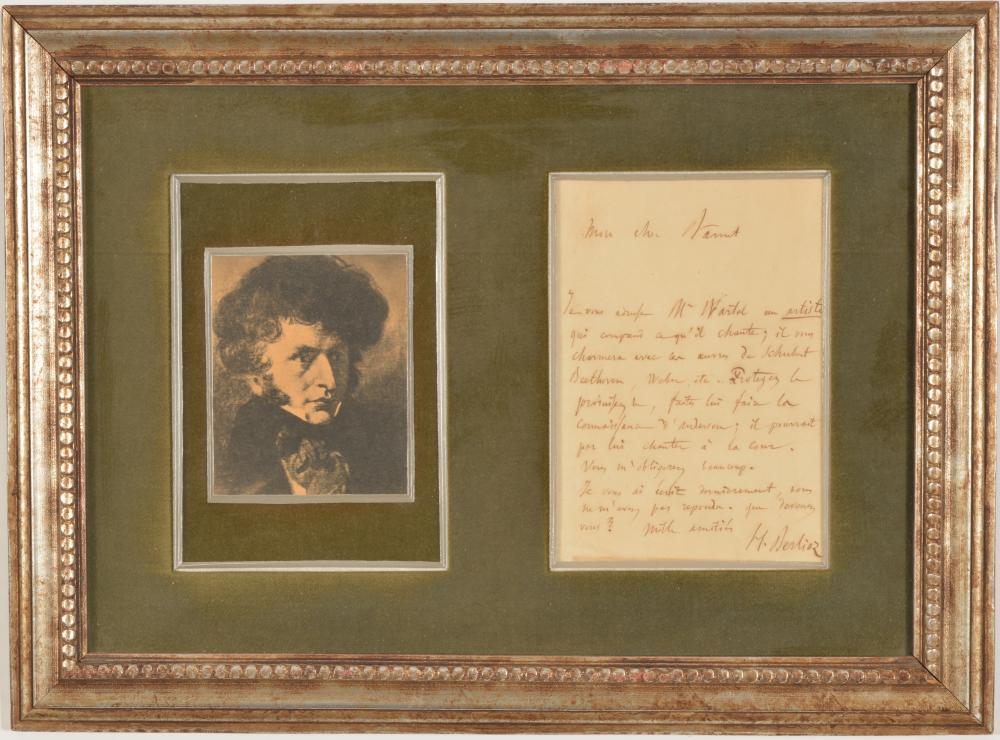 Mon cher
Je vous adresse Mr Wartel un artiste
qui comprend ce qu'il chante; il vous
charmera avec les œuvres de Schubert
Beethoven, Weber, etc. Protégez le
présentez le, faites lui faire la
connaissance d'Anderson; il pourrait
par lui chanter à la cour.
Vous m'obligerez beaucoup.
Je vous ai écrit dernièrement, vous
ne m'avez pas répondu. que devenez
vous? mille amitiés
H. Berlioz